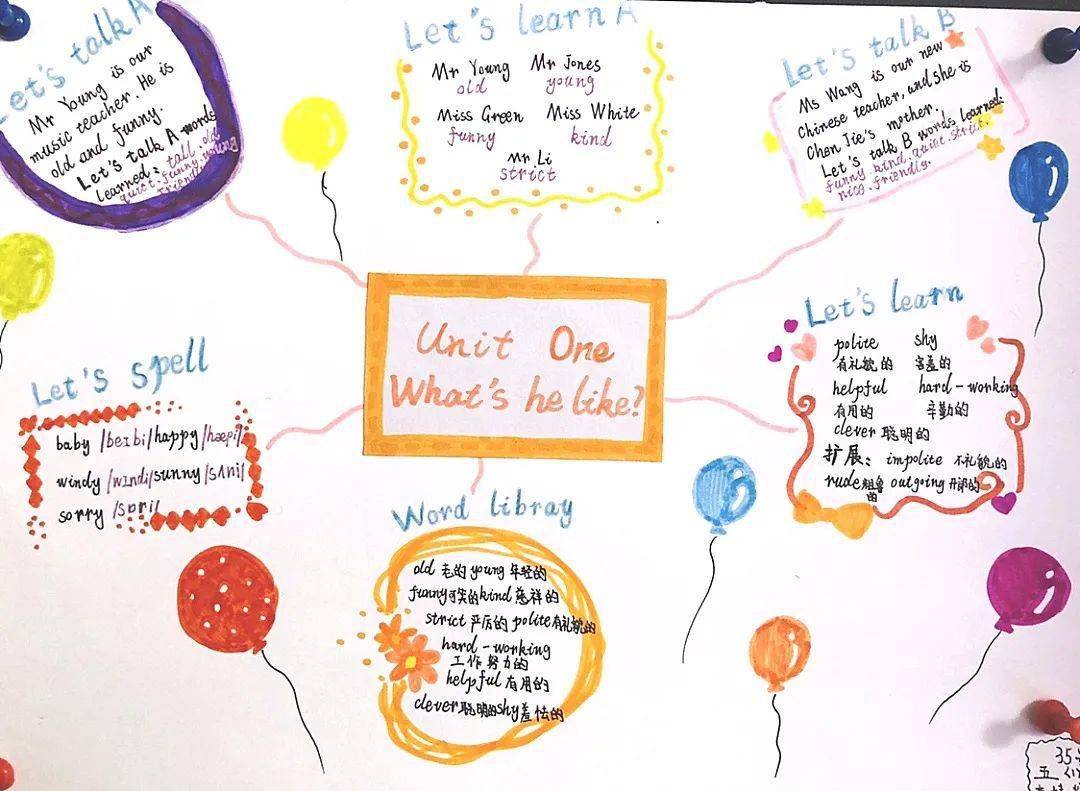 Let's talk A
Mr Young is our
music teacher. He is
old and funny.
Let's talk A words
learned: tall. old
quict. funny. young
friendly
Let's learn A
Mr Young Mr Jones
old young
Miss Green Miss White
funny kind
Mr Li
strict
Let's talk B
Ms Wang is our new
Chinese teacher, and she is
Chen Jie's mother.
Let's talk B words learned:
funny. kind. quict. strict.
nice. friendly.
Unit One
What's he like?
Let's learn
polite shy
有礼貌的 害羞的
helpful hard-working
有用的 辛勤的
clever 聪明的
扩展: impolite 不礼貌的
rude 粗鲁的 outgoing 开朗的
Let's spell
baby /beɪbi/ happy /hæpi/
windy /wɪndi/ sunny /sʌni/
sorry /sɒri/
Word libray
old 老的 young 年轻的
funny 可笑的 kind 慈祥的
strict 严厉的 polite 有礼貌的
hard-working
工作努力的
helpful 有用的
clever 聪明的 shy 羞怯的
35
五